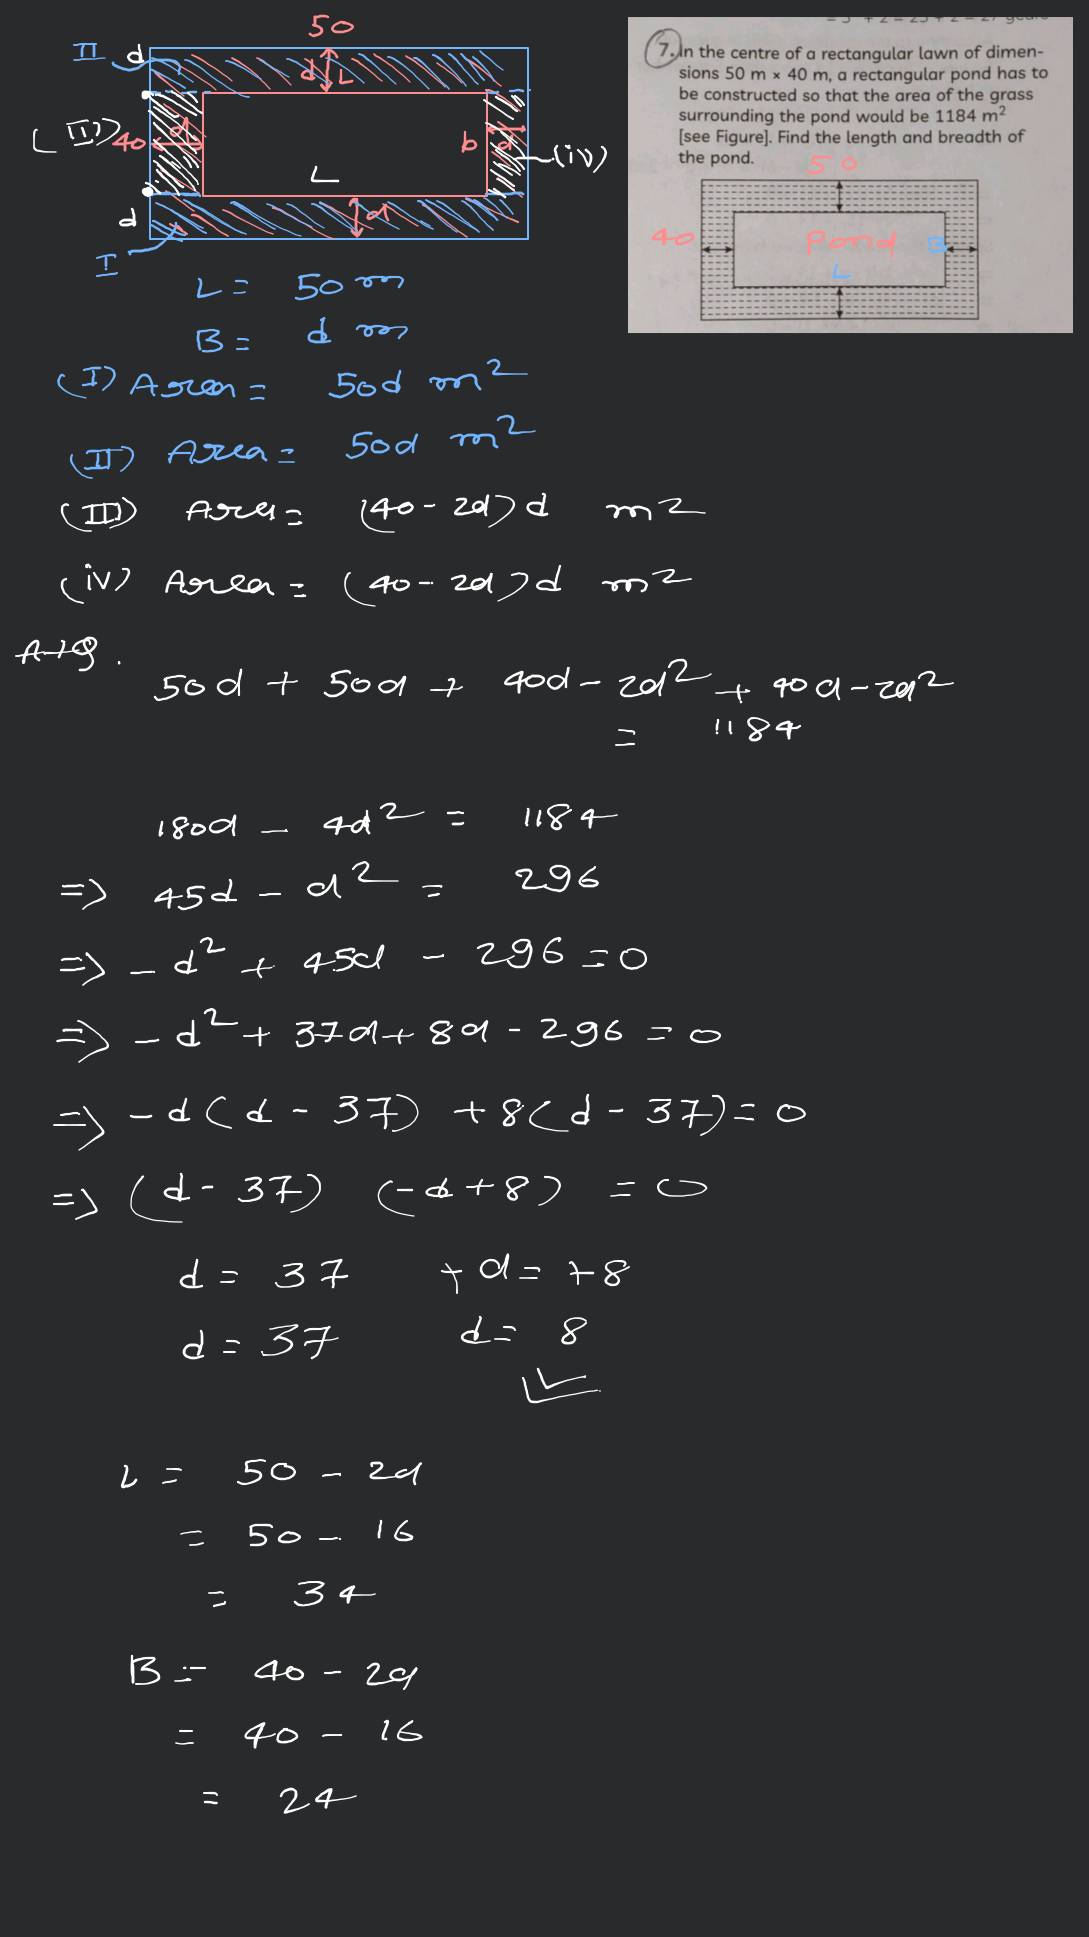 50
II d
d L
(III) 40 d
b d (iv)
L
d
d
I
= 3² + 2 = 25 + 2 = 27 years
7. In the centre of a rectangular lawn of dimen-
sions 50 m × 40 m, a rectangular pond has to
be constructed so that the area of the grass
surrounding the pond would be 1184 m²
[see Figure]. Find the length and breadth of
the pond.
50
40 Pond B
L
L = 50 m
B = d m
(I) Area = 50d m²
(II) Area = 50d m²
(III) Area = (40 - 2d) d m²
(iv) Area = (40 - 2d) d m²
AtQ.
50d + 50d + 40d - 2d² + 40d - 2d²
= 1184
180d - 4d² = 1184
=> 45d - d² = 296
=> - d² + 45d - 296 = 0
=> - d² + 37d + 8d - 296 = 0
=> - d (d - 37) + 8 (d - 37) = 0
=> (d - 37) (-d + 8) = 0
d = 37 + d = + 8
d = 37 d = 8
L = 50 - 2d
= 50 - 16
= 34
B = 40 - 2d
= 40 - 16
= 24